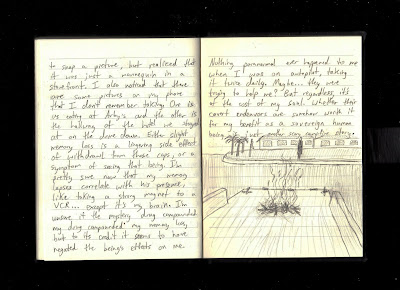 to snap a picture, but realized that
it was just a mannequin in a
storefront. I also noticed that there
were some pictures on my phone
that I don't remember taking. One is
us eating at Arby's and the other is
the hallway of the hotel we stayed
at on the drive down. Either slight
memory loss is a lingering side effect
of withdrawal from those caps, or a
symptom of seeing that being. I'm
pretty sure now that my memory
lapses correlate with his presence,
like taking a strong magnet to a
VCR... Except it's my brain. I'm
unsure if the mystery drug compounded
my drug compounded my memory loss,
but to its credit it seems to have
negated the being's effects on me.
Nothing paranormal ever happened to me
when I was on autopilot, taking
it twice daily. Maybe... they were
trying to help me? But regardless, it's
at the cost of my soul. Whether their
covert endeavors are somehow worth it
for my benefit as a sovereign human
being is just another story.